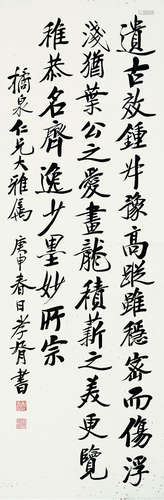 遺古效鍾升豫高蹤雖穩密而傷浮
淺猶葉公之愛畫龍積薪之美更覽
稚恭名齊逸少墨妙所宗
橘泉仁兄大雅屬 庚申春日孝胥書